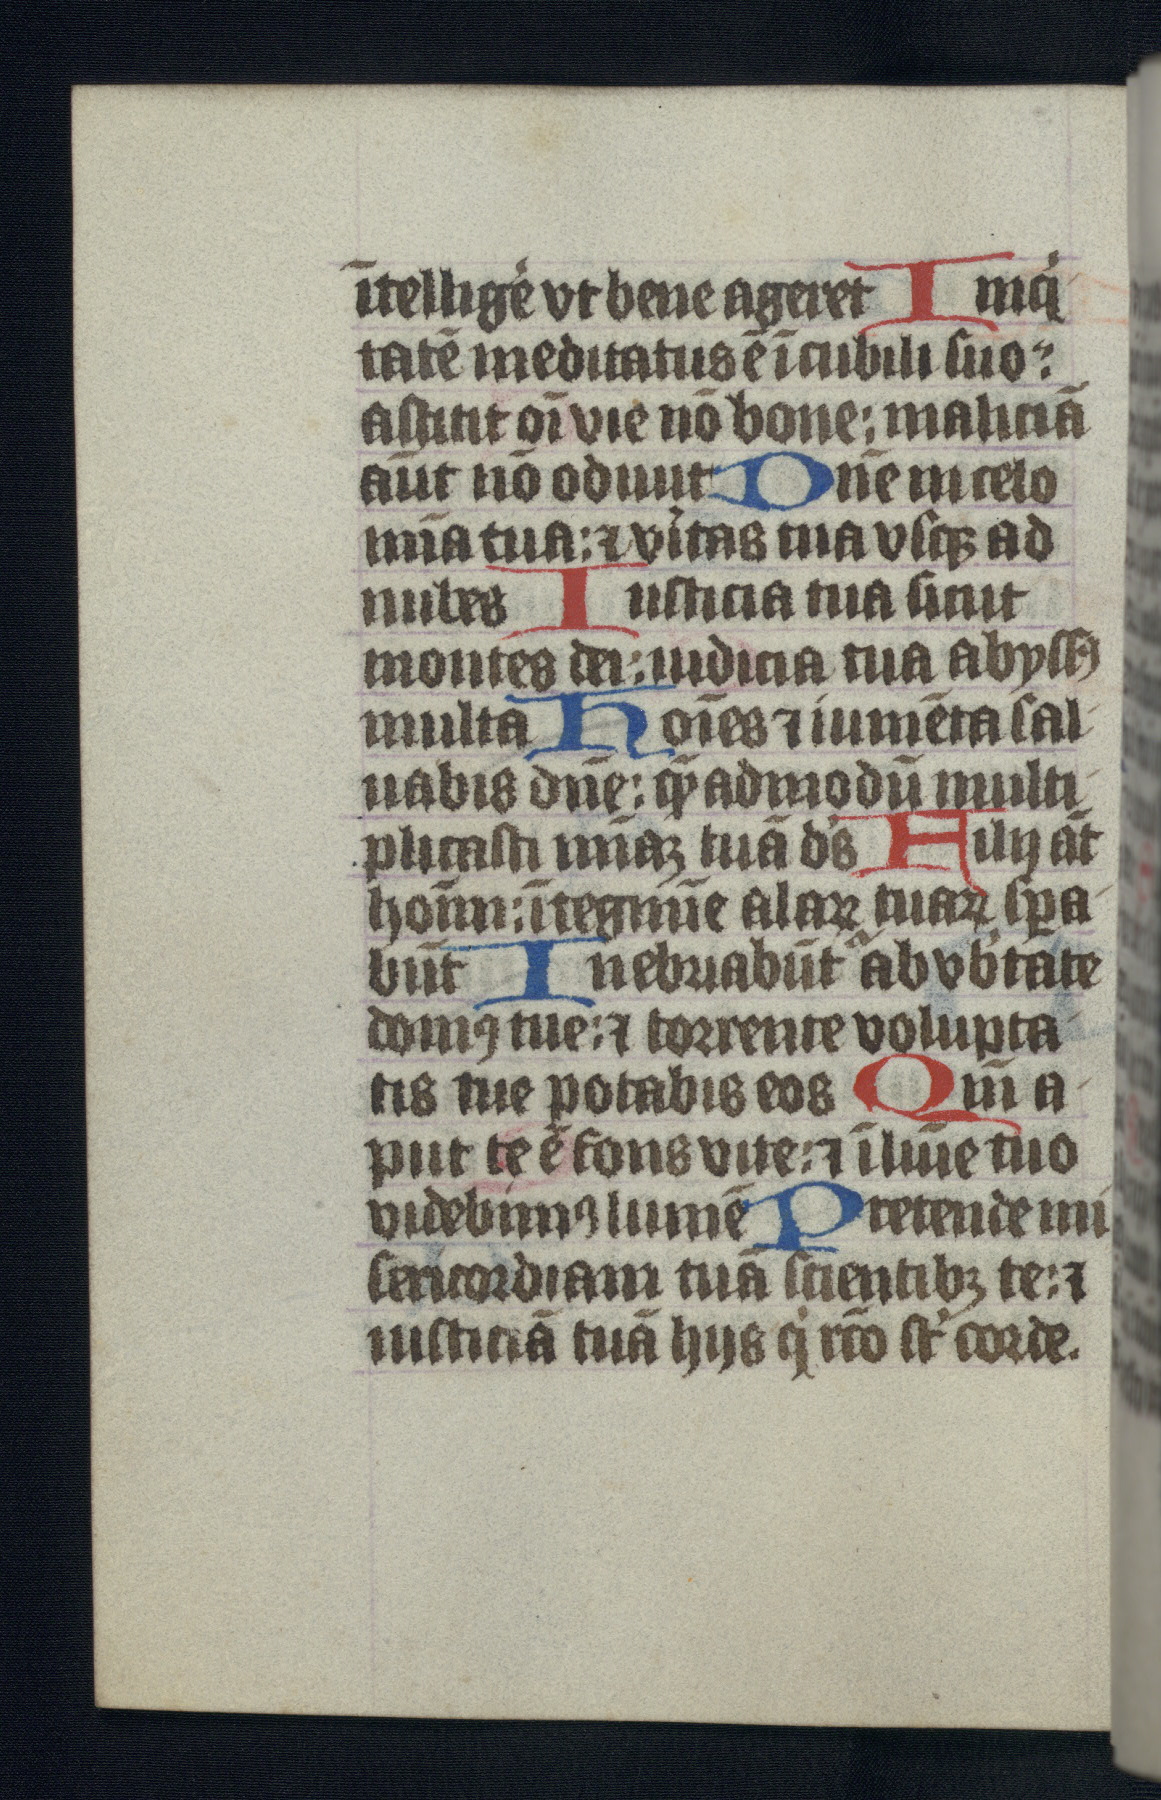 ītellige᷒ vt bene ageret Iniqͥ
tatē meditatus ē ī cubili suo:
astitit oī vie nō bone; maliciā
aūt nō odiuit Dn̄e in celo
mīa tua: ⁊ vͥtas tua vsqꝫ ad
nubes Iusticia tua sicut
montes dei: iudicia tua abyssꝰ
multa Hoīes ⁊ iumēta sal
uabis dn̄e: qͫadmodū multi
plicasti mīaꝫ tuā dˀs Filij āt
hoīm: ī tegmīe alaꝝ tuaꝝ sꝑa
būt Inebriabūtͬ ab vbˀtate
domꝰ tue: ⁊ torrente volupta
tis tue potabis eos Qm̄ a
put te ē fons vite: ⁊ ī lumīe tuo
videbimꝰ lumē Pretende mi
sericordiam tuā scientibꝫ te: ⁊
iusticiā tuā hijs qͥ rc̄o sͭ corde.